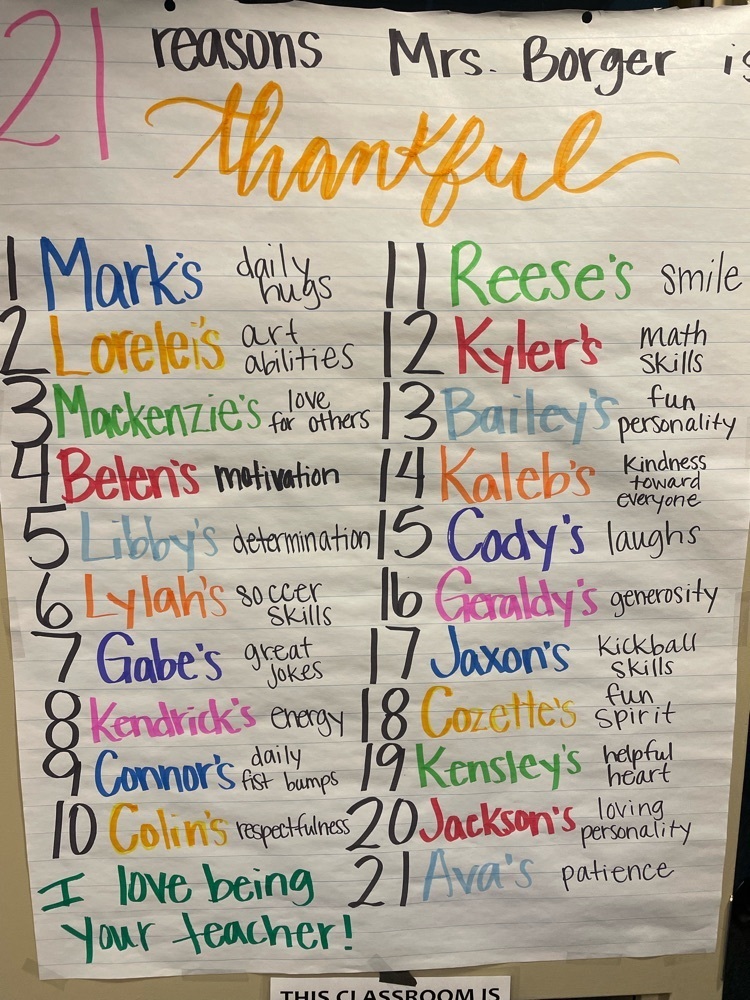 21 reasons Mrs. Borger is
thankful
1 Mark's daily hugs
2 Lorelei's art abilities
3 Mackenzie's love for others
4 Belen's motivation
5 Libby's determination
6 Lylah's soccer skills
7 Gabe's great jokes
8 Kendrick's energy
9 Connor's daily fist bumps
10 Colin's respectfulness
I love being
your teacher!
11 Reese's smile
12 Kyler's math skills
13 Bailey's fun personality
14 Kaleb's Kindness toward everyone
15 Cody's laughs
16 Geraldy's generosity
17 Jaxon's Kickball skills
18 Cozette's fun spirit
19 Kensley's helpful heart
20 Jackson's loving personality
21 Ava's patience
THIS CLASSROOM IS